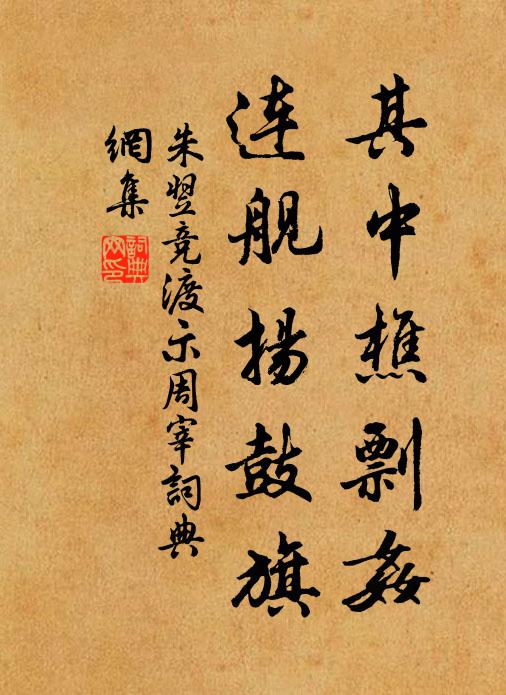 其中樵剽姦
連舰揚鼓旗
朱翌竞渡示周宰詞典
網集
詞典
网印